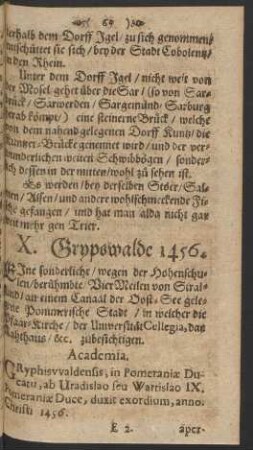 ( 69 )
terhalb dem Dorff Igel/ zu sich genommen/
entschüttet sie sich/ bey der Stadt Cobolentz/
in den Rhein.
Unter dem Dorff Igel/ nicht weit von
der Mosel gehet über die Sar/ (so von Sar-
brück/ Sarwerden/ Sargemünd/ Sarburg
herab kömpt/) eine steinerne Brück/ welche
von dem nahend gelegenen Dorff Kuntz/ die
Kuntzer-Brücke genennet wird/ und der ver-
wunderlichen weiten Schwibbögen/ sonder-
lich dessen in der mitten/ wohl zu sehen ist.
Es werden/ bey derselben Stöer/ Sal-
men/ Alsen/ und andere wohlschmeckende Fi-
sche gefangen/ und hat man alda nicht gar
weit mehr gen Trier.
X. Grypswalde 1456.
EIne sonderliche/ wegen der Hohenschu-
len/ berühmbte/ Vier Meilen von Stral-
sund/ an einem Canaal der Oost-See gele-
gene Pommerische Stadt/ in welcher die
Pfaar-Kirche/ der Universität Collegia, das
Rahthaus/ &c. zubesichtigen.
Academia.
GRyphisvvaldensis, in Pomeraniæ Du-
catu, ab Uradislao seu Wartislao IX.
Pomeraniæ Duce, duxit exordium, anno
Christi 1456.
E 2. aper-